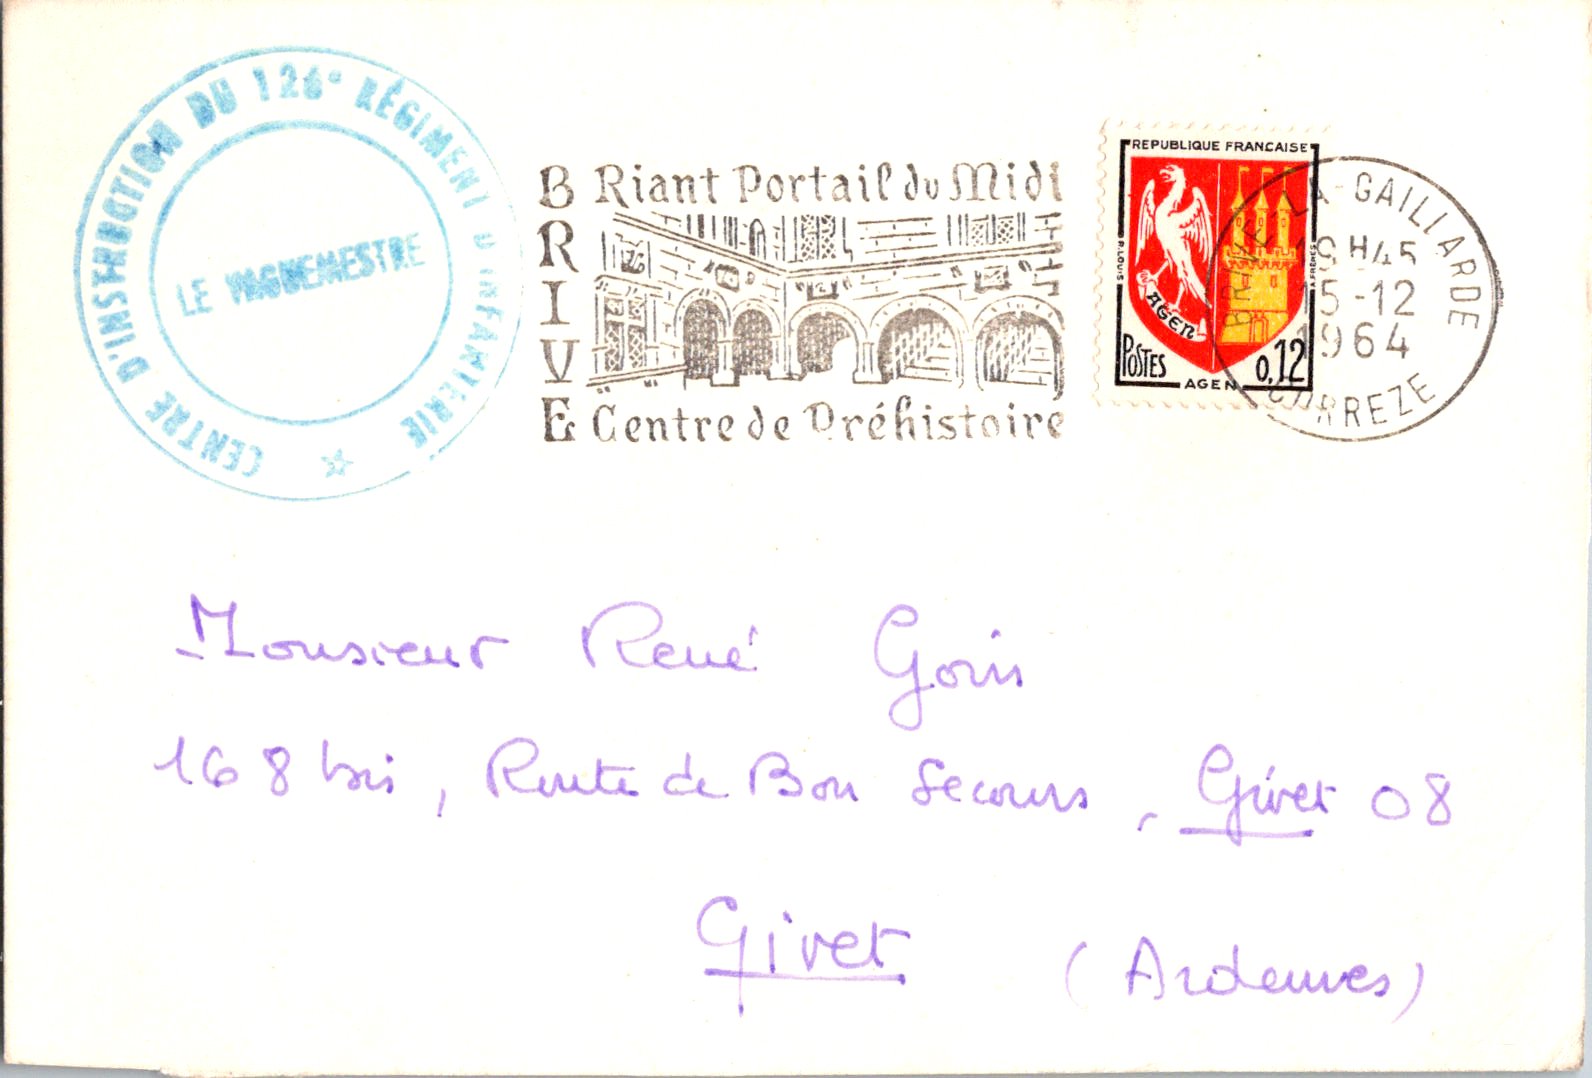 CENTRE D'INSTRUCTION DU 126e RÉGIMENT D'INFANTERIE
LE VAGUEMESTRE
BRIVE
Riant Portail du Midi
Centre de Préhistoire
REPUBLIQUE FRANCAISE
R.LOUIS
FRÈRES
AGEN
POSTES
AGEN
0,12
BRIVE-LA-GAILLARDE
19H45
15-12
1964
CORREZE
Monsieur René Goris
168 bis, Route de Bon Secours, Givet 08
Givet (Ardennes)